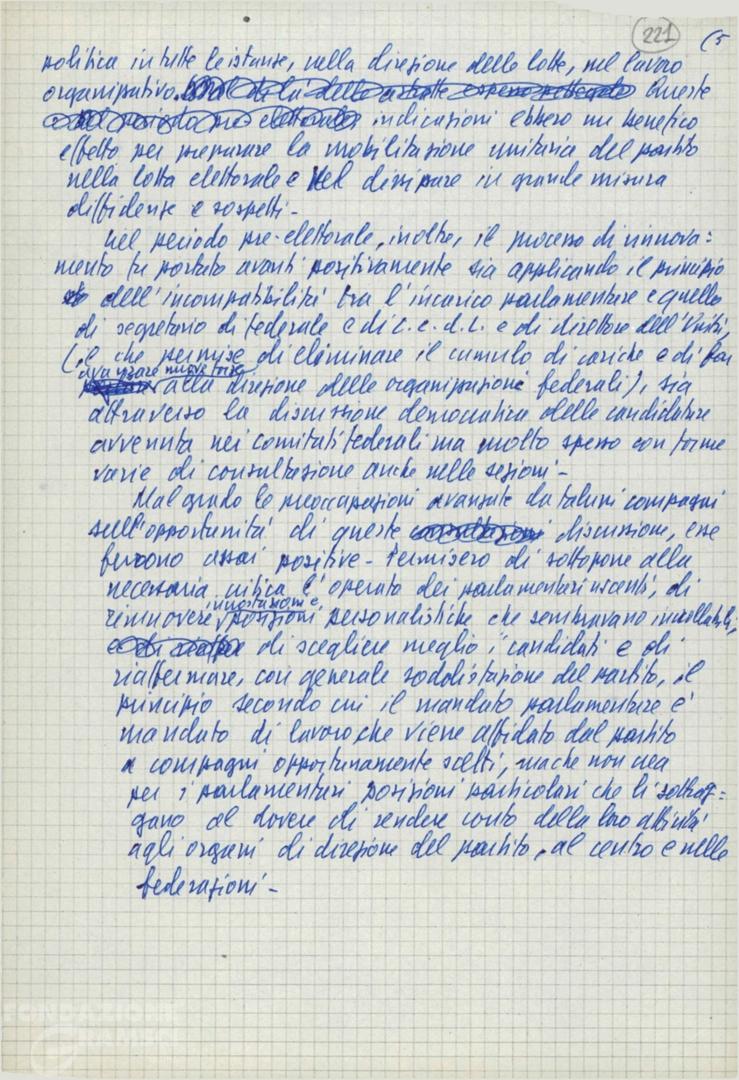 221
(5
politica in tutte le istanze, nella direzione delle lotte, nel lavoro
organizzativo. Queste
indicazioni ebbero un benefico
effetto per preparare la mobilitazione unitaria del partito
nella lotta elettorale e nel dissipare in grande misura
diffidenze e sospetti -
Nel periodo pre-elettorale, inoltre, il processo di rinnova=
mento fu portato avanti positivamente sia applicando il principio
dell'incompatibilità tra l'incarico parlamentare e quello
di segretario di federale e di C.C.d.L. e di direttore dell'Unità,
(il che permise di eliminare il cumulo di cariche e di far
avanzare nuove forze
alla direzione delle organizzazioni federali), sia
attraverso la discussione democratica delle candidature
avvenuta nei comitati federali ma molto spesso con forme
varie di consultazione anche nelle sezioni -
Malgrado le preoccupazioni avanzate da taluni compagni
sull'opportunità di queste discussione, esse
furono assai positive - Permisero di sottoporre alla
necessaria critica l'operato dei parlamentari uscenti, di
rimuovere incrostazioni e posizioni personalistiche che sembravano incrollabili,
di scegliere meglio i candidati e di
riaffermare, con generale soddisfazione del partito, il
principio secondo cui il mandato parlamentare è
mandato di lavoro che viene affidato dal partito
a compagni opportunamente scelti, ma che non crea
per i parlamentari posizioni particolari che li sottrag=
gano al dovere di rendere conto della loro attività
agli organi di direzione del partito, al centro e nelle
federazioni -
FONDAZIONE
GRAMSCI